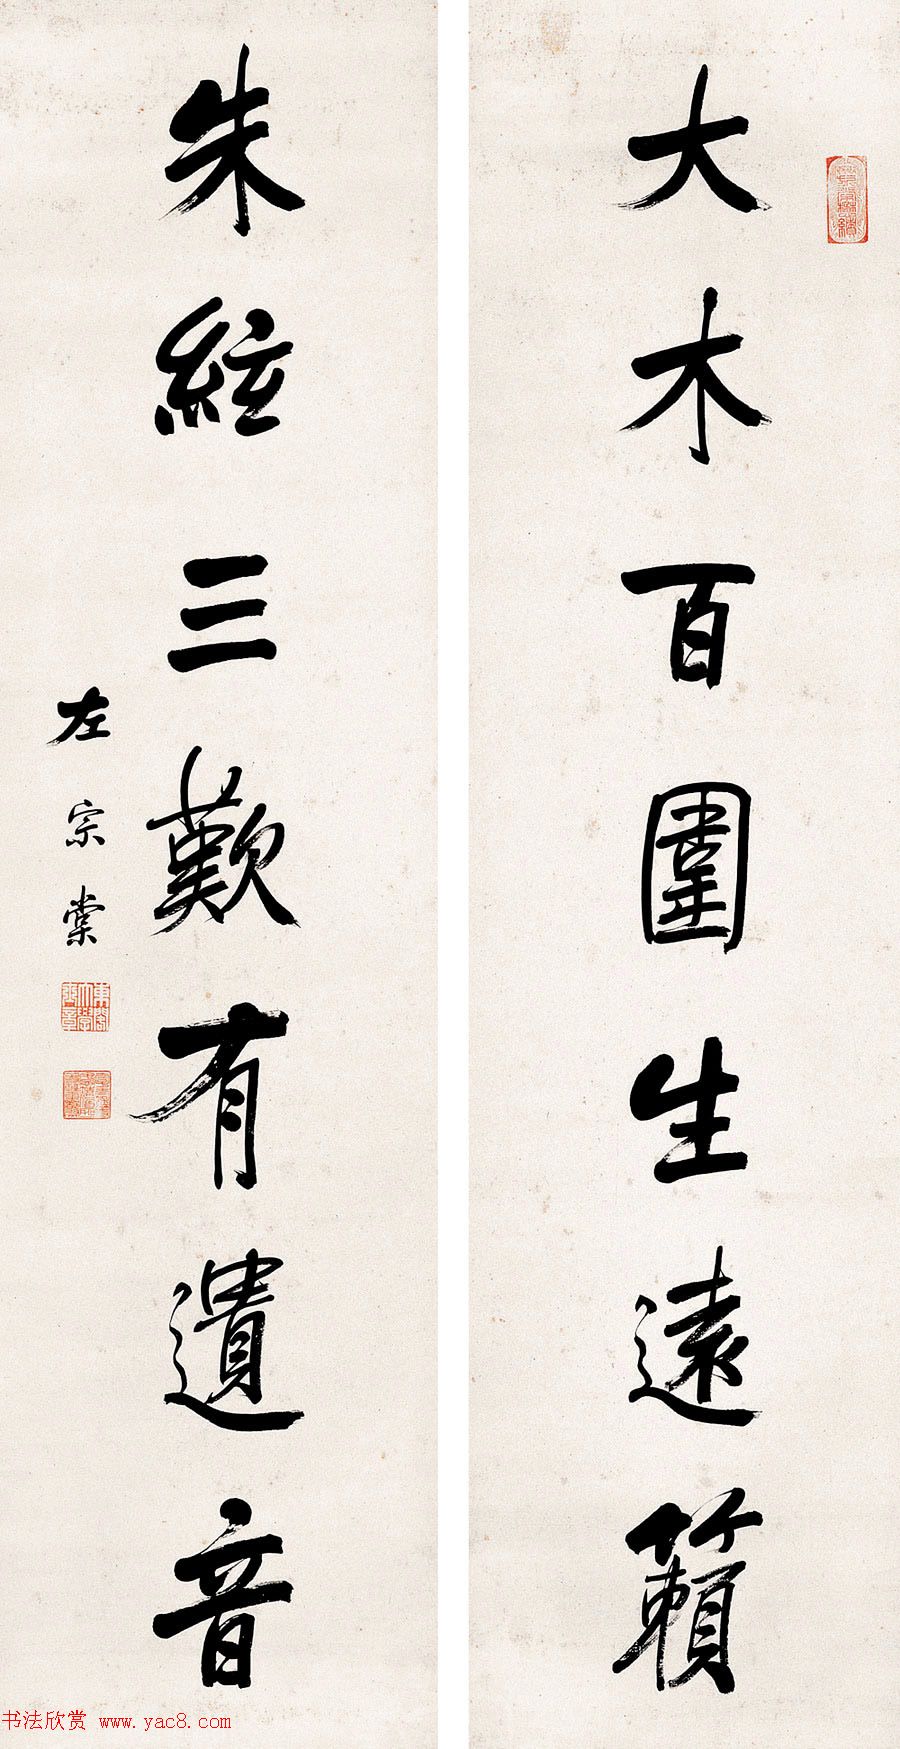 大木百圍生遠籟
朱絃三歎有遺音
左宗棠
书法欣赏 www.yac8.com